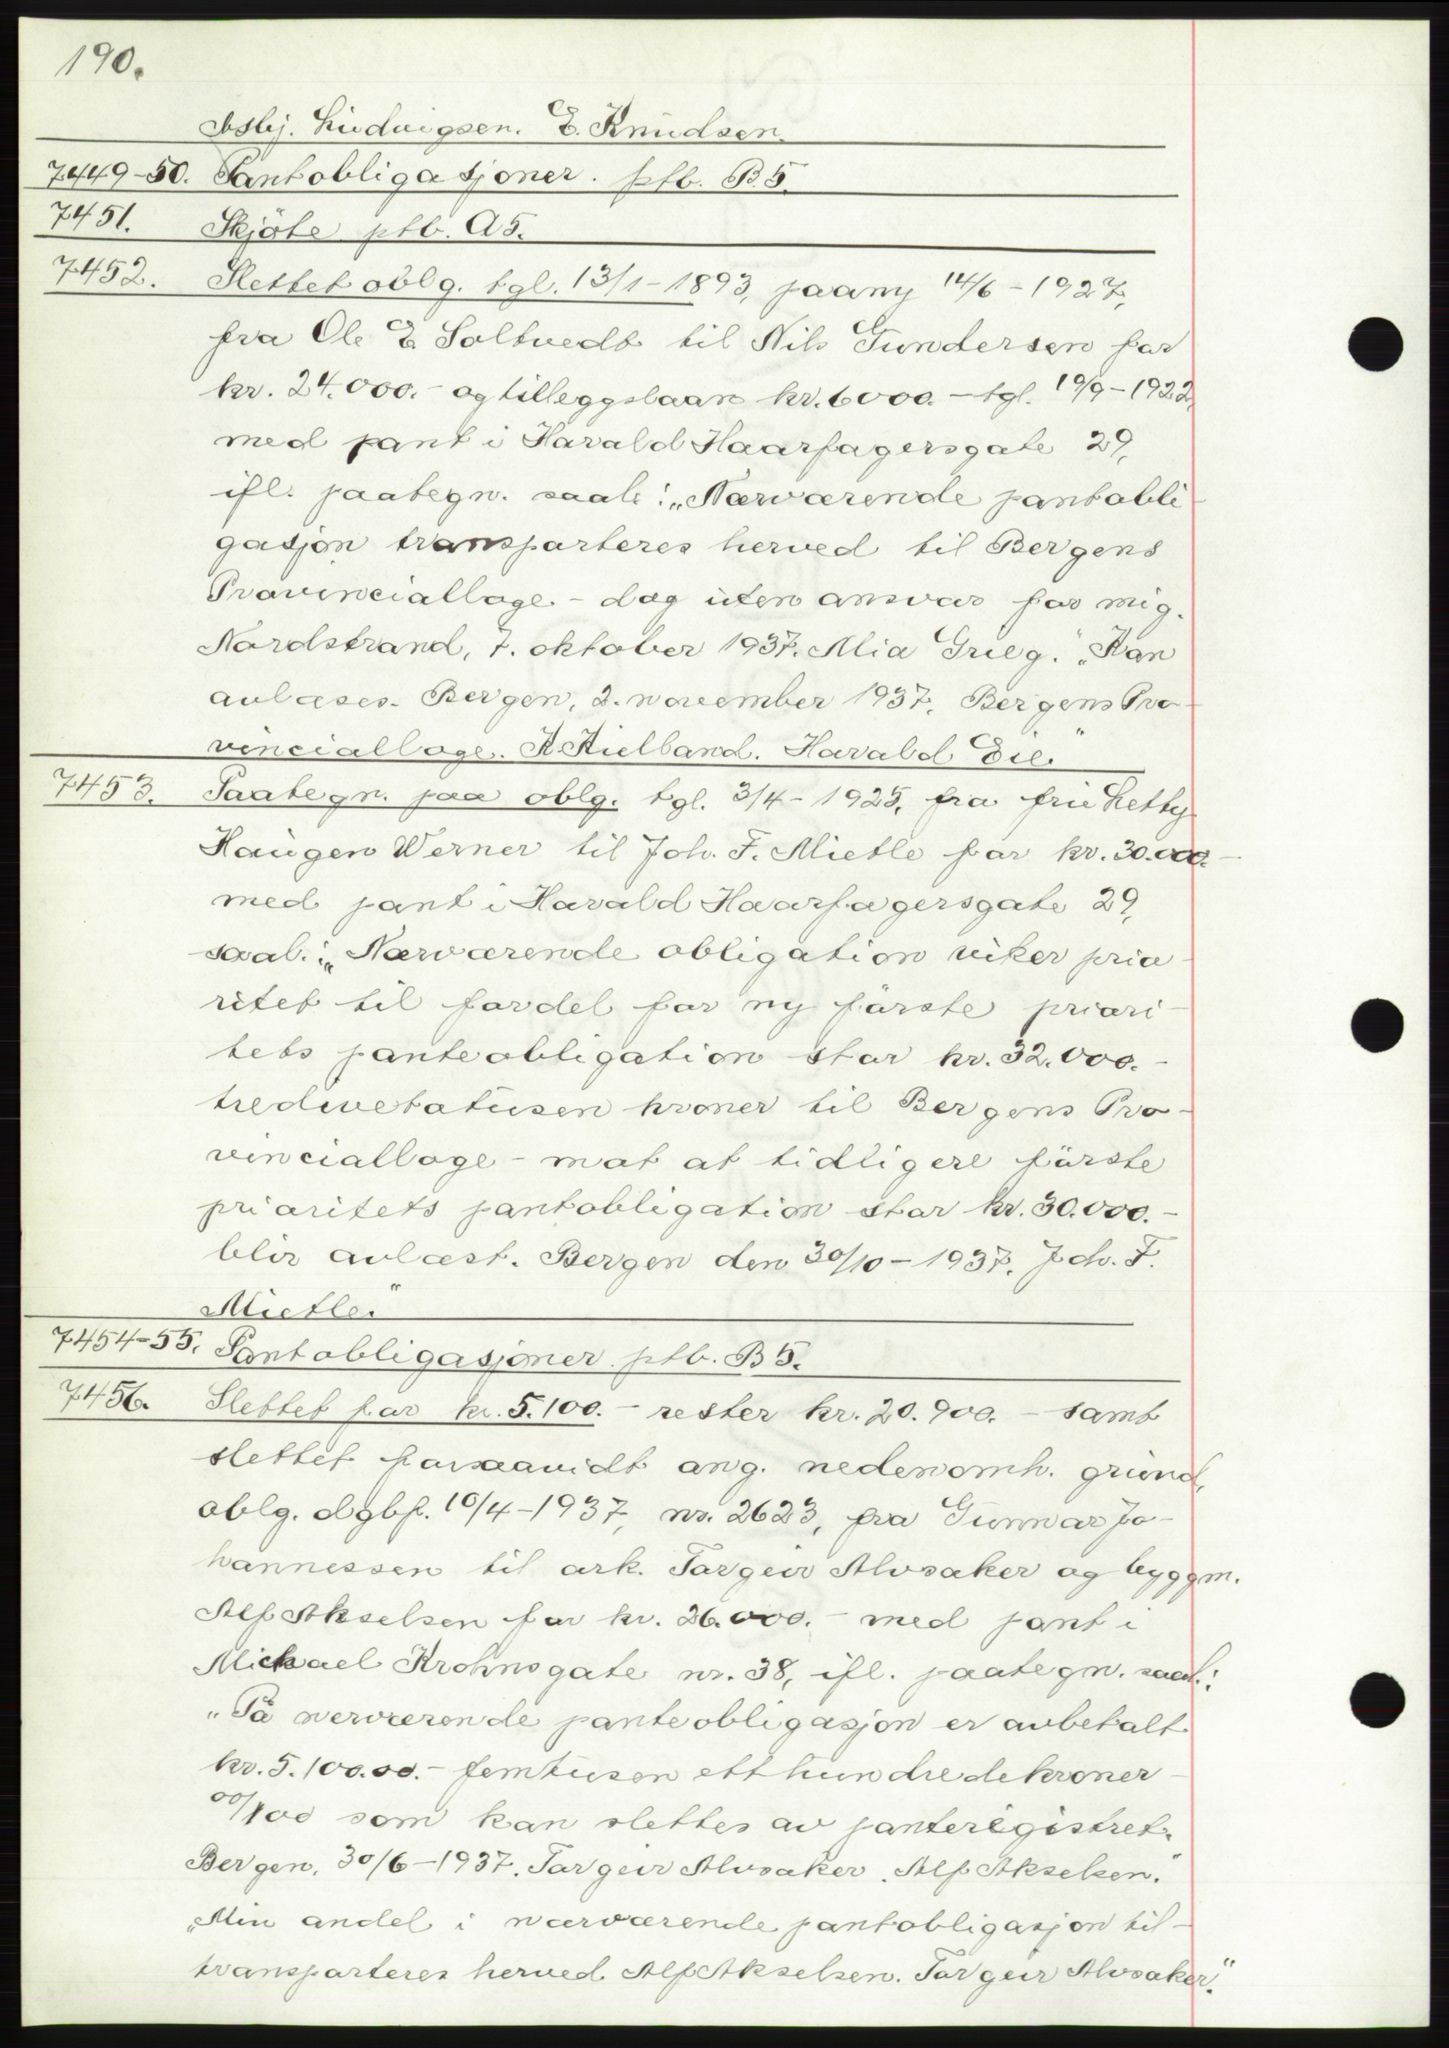 190.
Asbj. Ludvigsen. E. Knudsen.
7449-50. Pantobligasjoner. ptb. B5.
7451. Skjöte ptb. A5.
7452. Slettet oblg. tgl. 13/1-1893, paany 14/6-1927,
fra Ole E Soltvedt til Nils Gundersen for
kr. 24.000.- og tilleggslaan kr. 6000.- tgl. 19/9-1922,
med pant i Harald Haarfagersgate 29,
ifl. paategn. saal.: „Nærværende pantobli-
gasjon transporteres herved til Bergens
Provincialloge - dog uten ansvar for mig.
Nordstrand, 7. oktober 1937. Mia Grieg." „Kan
avlæses. Bergen, 2. november 1937. Bergens Pro-
vincialloge. A Kielland. Harald Eie."
7453. Paategn. paa oblg. tgl. 3/4-1925, fra fru Hetty
Haugen Werner til Joh. F. Mietle for kr. 30.000.-
med pant i Harald Haarfagersgate 29,
saal.: „Nærværende obligation viker prio-
ritet til fordel for ny förste priori-
tets panteobligation stor kr. 32.000.-
tredivetotusen kroner til Bergens Pro-
vincialloge - mot at tidligere förste
prioritets pantobligation stor kr. 30.000.-
blir avlæst. Bergen den 30/10-1937. Joh. F.
Mietle."
7454-55. Pantobligasjoner. ptb. B5.
7456. Slettet for kr. 5.100.- rester kr. 20.900.- samt
slettet forsaavidt ang. nedenomh. grund,
oblg. dgbf. 10/4-1937, nr. 2623, fra Gunnar Jo-
hannessen til ark. Torgeir Alvsaker og byggm.
Alf Akselsen for kr. 26.000.- med pant i
Michael Krohnsgate nr. 38, ifl. paategn. saal.:
„På nerværende panteobligasjon er avbetalt
kr. 5.100.00.- femtusen etthundrede kroner -
00/100 som kan slettes av panteregistret.
Bergen, 30/6-1937. Torgeir Alvsaker. Alf Akselsen."
„Min andel i nærværende pantobligasjon til-
transporteres herved Alf Akselsen. Torgeir Alvsaker."